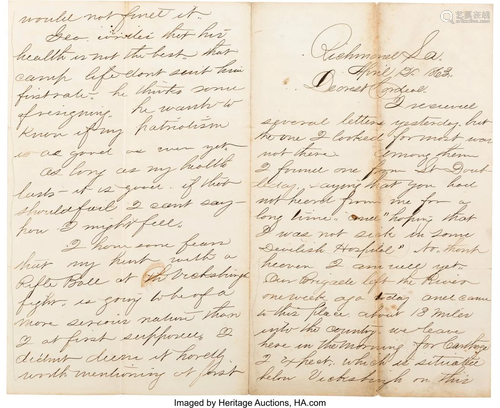 would not finet it.
Geo. writes that his
health is not the best, that
camp life dont suit him
firstrate. he thinks some
of resigning. he wants to
know if my patriotism
is as good as ever yet.
as long as my health
lasts - it is good. if that
should fail I cant say
how I might feel.
I have some fears
that my hurt with a
Rifle Ball at the Vicksburg
fight. is going to be of a
more serious nature than
I at first supposed. I
didnt deem it hardly
worth mentioning at first
Richmond La.
April 1863.
Dearest Cordeal.
I received
several letters yesterday. but
the one I looked for most was
not there. among them
I found one from St
saying that you had
not heard from me for a
long time. and "hoping that
I was not sick in some
Devilish Hospital" No. thank
heaven I am well yet.
Our Brigade left the River
one week ago today and came
to this place about 13 miles
into the country. we leave
here in the morning for Carthage
I expect. which is situated
below Vicksburgh on this
艺典中国
yidianchina.com
Imaged by Heritage Auctions, HA.com